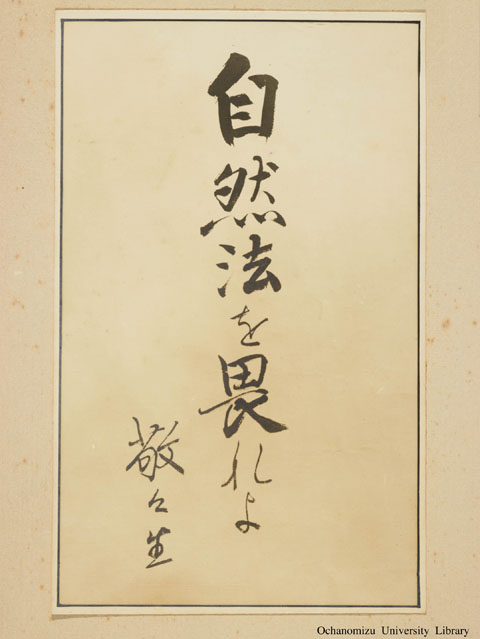 自然法を畏れよ
敬々生
Ochanomizu University Library